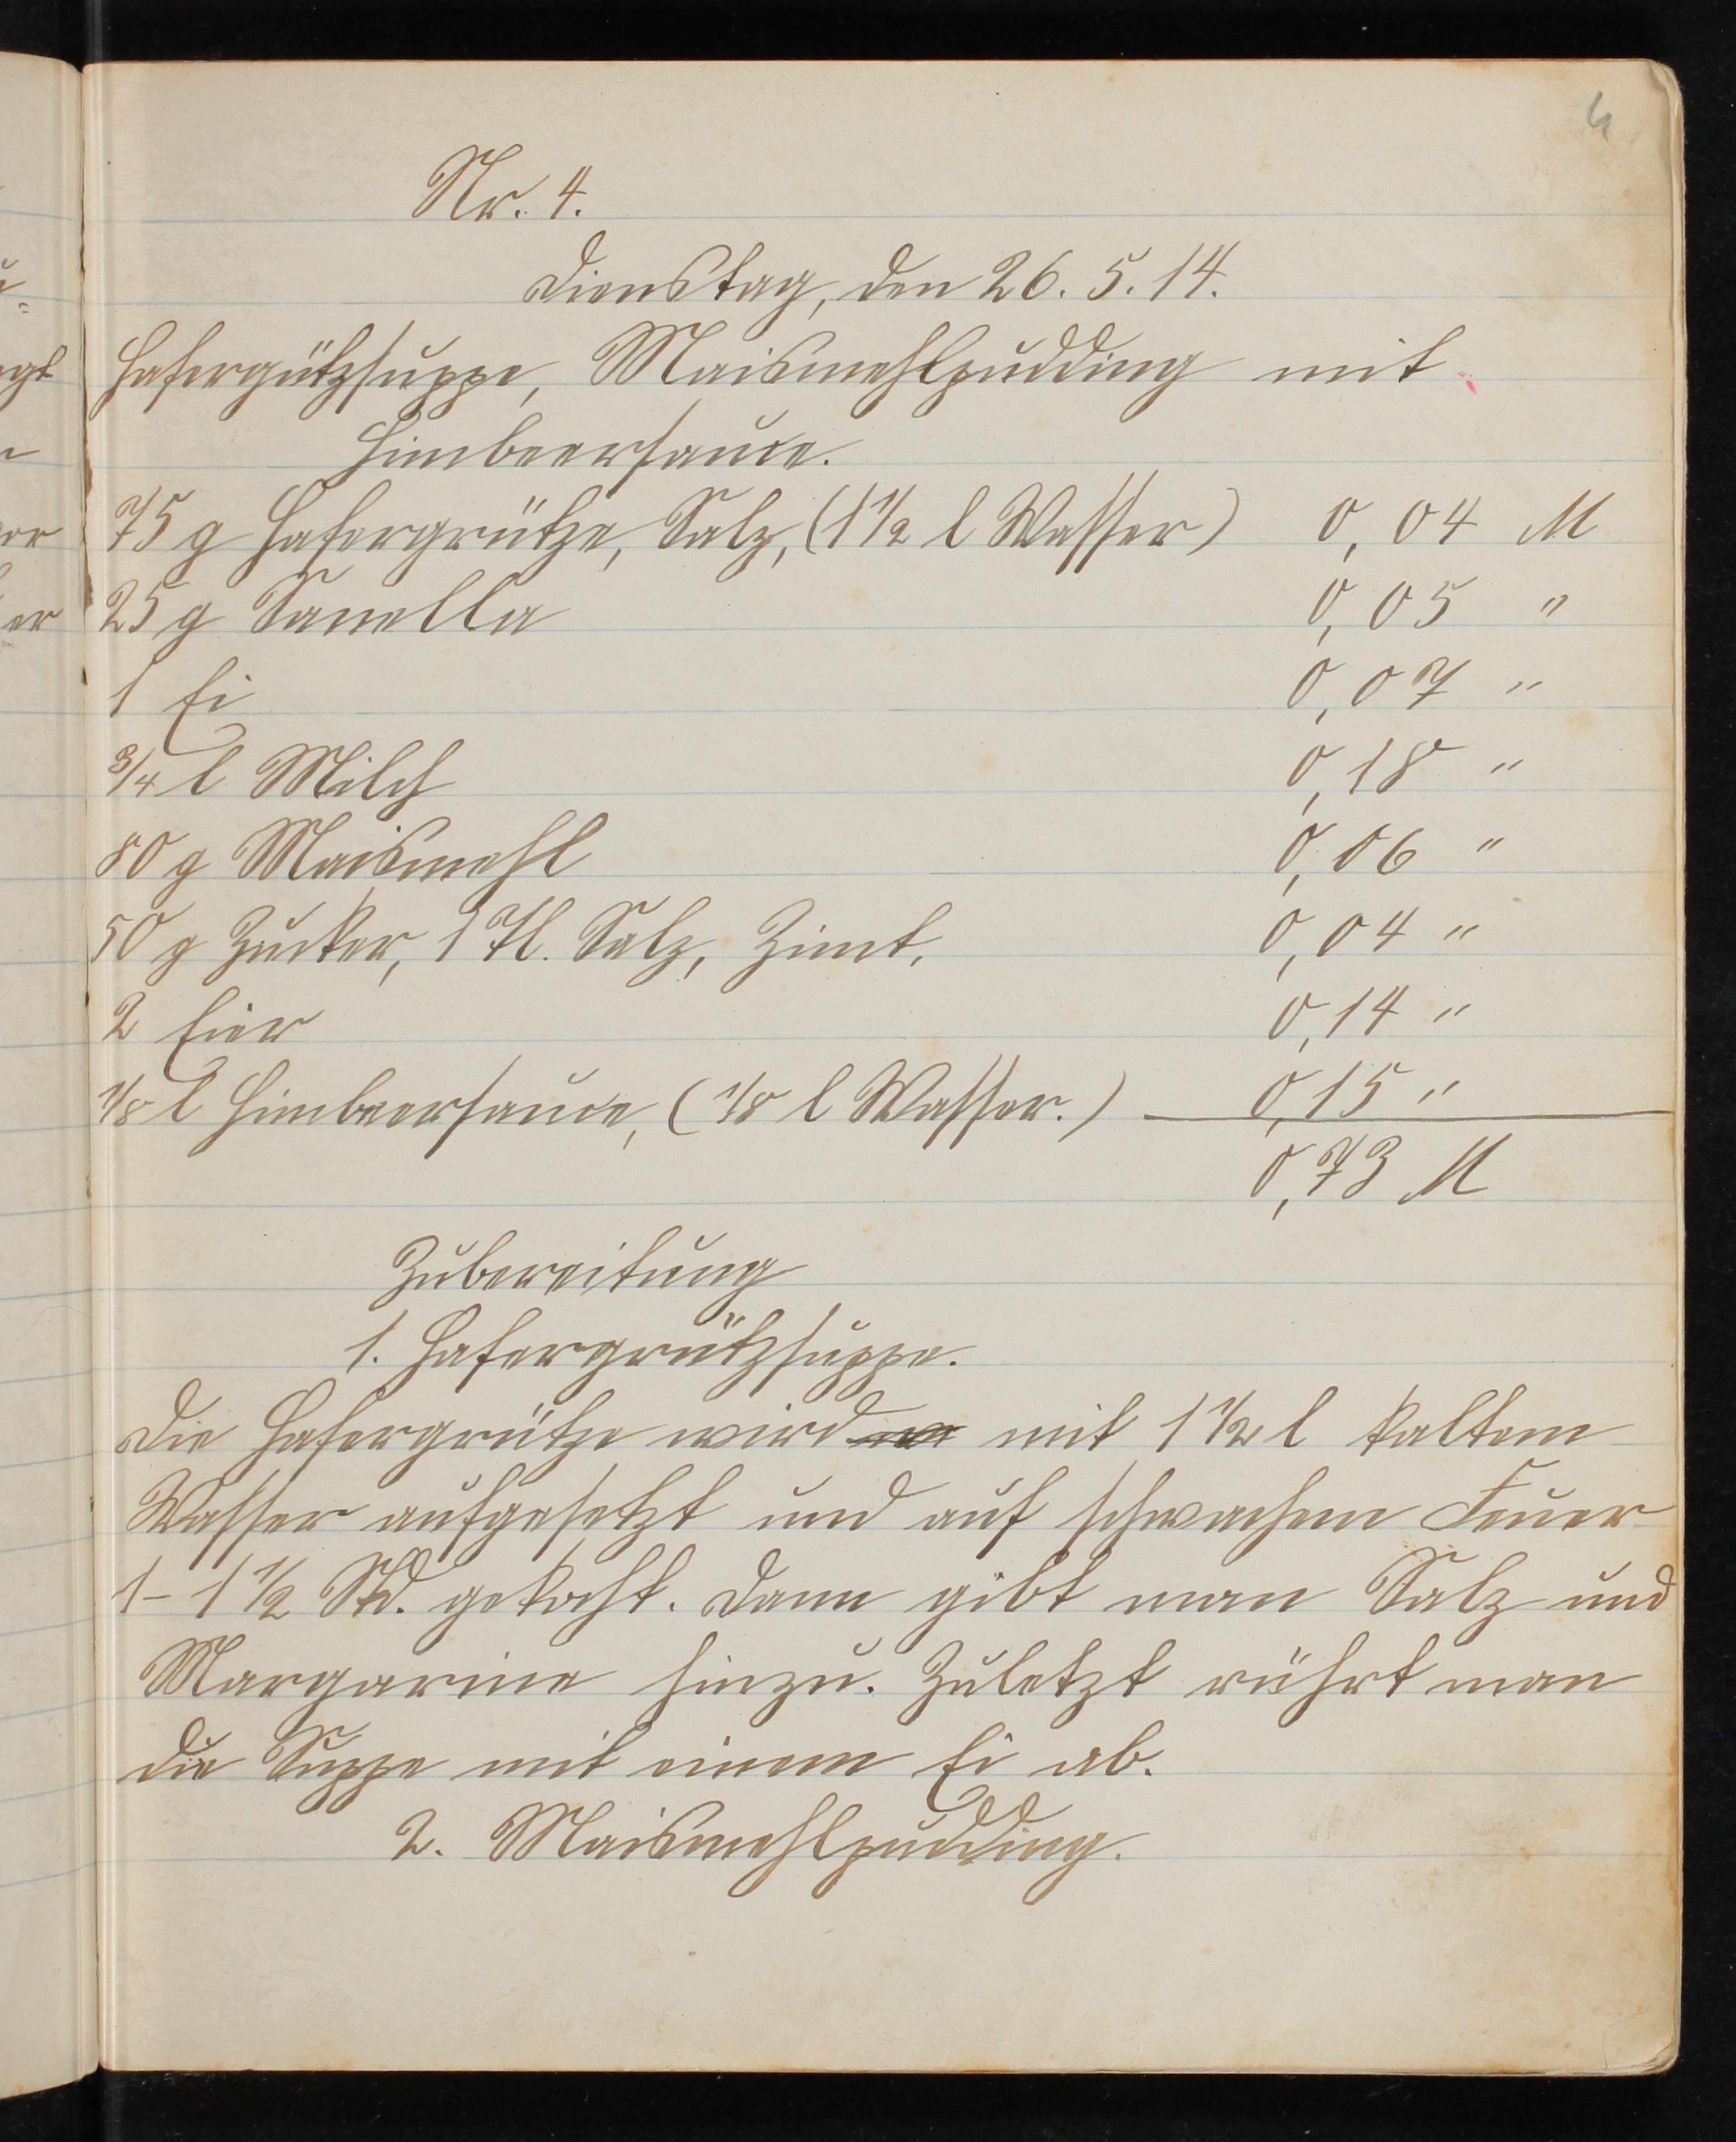 4
Nr. 4.
Dienstag, den 26. 5. 14.
Hafergützsuppe, Maismehlpudding mit
Himbeersauce.
75 g Hafergrütze, Salz, (1 1/2 l Wasser) 0,04 M
25 g Sanella 0,05 "
1 Ei 0,07 "
3/4 l Milch 0,18 "
80 g Maismehl 0,06 "
50 g Zucker, 1 Tl. Salz, Zimt, 0,04 "
2 Eier 0,14 "
1/8 l Himbeersauce, (1/8 l Wasser.) 0,15 "
0,73 M
Zubereitung
1. Hafergrützsuppe.
Die Hafergrütze wird mit 1 1/2 l kaltem
Wasser aufgesetzt und auf schwachem Feuer
1- 1 1/2 Std. gekocht. Dann gibt man Salz und
Margarine hinzu. Zuletzt rührt man
die Suppe mit einem Ei ab.
2. Maismehlpudding.